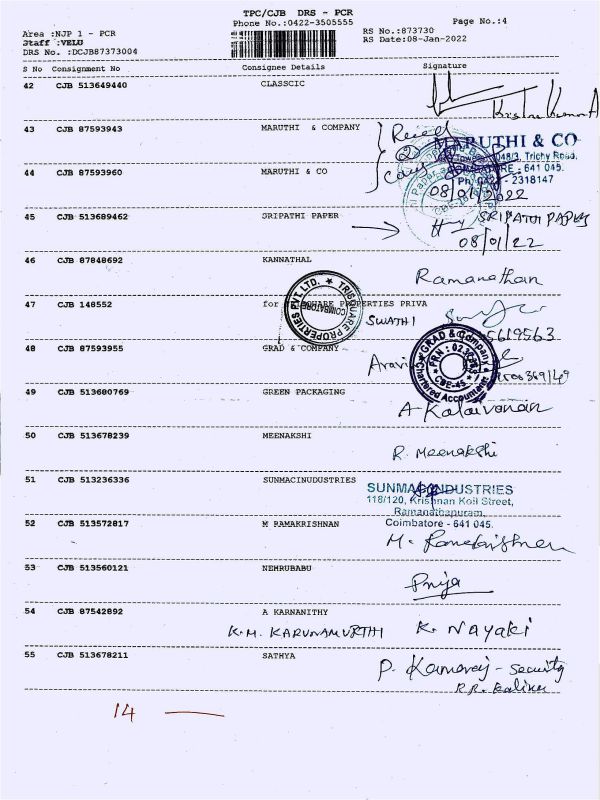 TPC/CJB DRS - PCR
Phone No.:0422-3505555
Page No.:4
Area :NJP 1 - PCR
RS No.:873730
Staff :VELU
RS Date:08-Jan-2022
DRS No. :DCJB87373004
S No Consignment No Consignee Details Signature
42 CJB 513649440 CLASSCIC
43 CJB 87593943 MARUTHI & COMPANY
MARUTHI & CO
Trichy Road,
641 045.
Ph: 2318147
44 CJB 87593960 MARUTHI & CO
08/01/2022
45 CJB 513689462 SRIPATHI PAPER
SRIPATHI PAPERS
08/01/22
46 CJB 87848692 KANNATHAL
Ramanathan
47 CJB 148552 for TRISQUARE PROPERTIES PRIVA
TRISQUARE PROPERTIES PVT. LTD.
COIMBATORE
SWATHI
48 CJB 87593955 GRAD & COMPANY
GRAD & Company
Chartered Accountants
CBE-45
49 CJB 513680769 GREEN PACKAGING
A Kalaivanan
50 CJB 513678239 MEENAKSHI
R. Meenakshi
51 CJB 513236336 SUNMACINUDUSTRIES
SUNMAC INDUSTRIES
118/120, Krishnan Koil Street,
Ramanathapuram,
Coimbatore - 641 045.
52 CJB 513572817 M RAMAKRISHNAN
M. Ramakrishnan
53 CJB 513560121 NEHRUBABU
Priya
54 CJB 87542892 A KARNANITHY
K.M. KARUNAMURTHI K. Nayaki
55 CJB 513678211 SATHYA
P. Kamaraj - Security
14 —